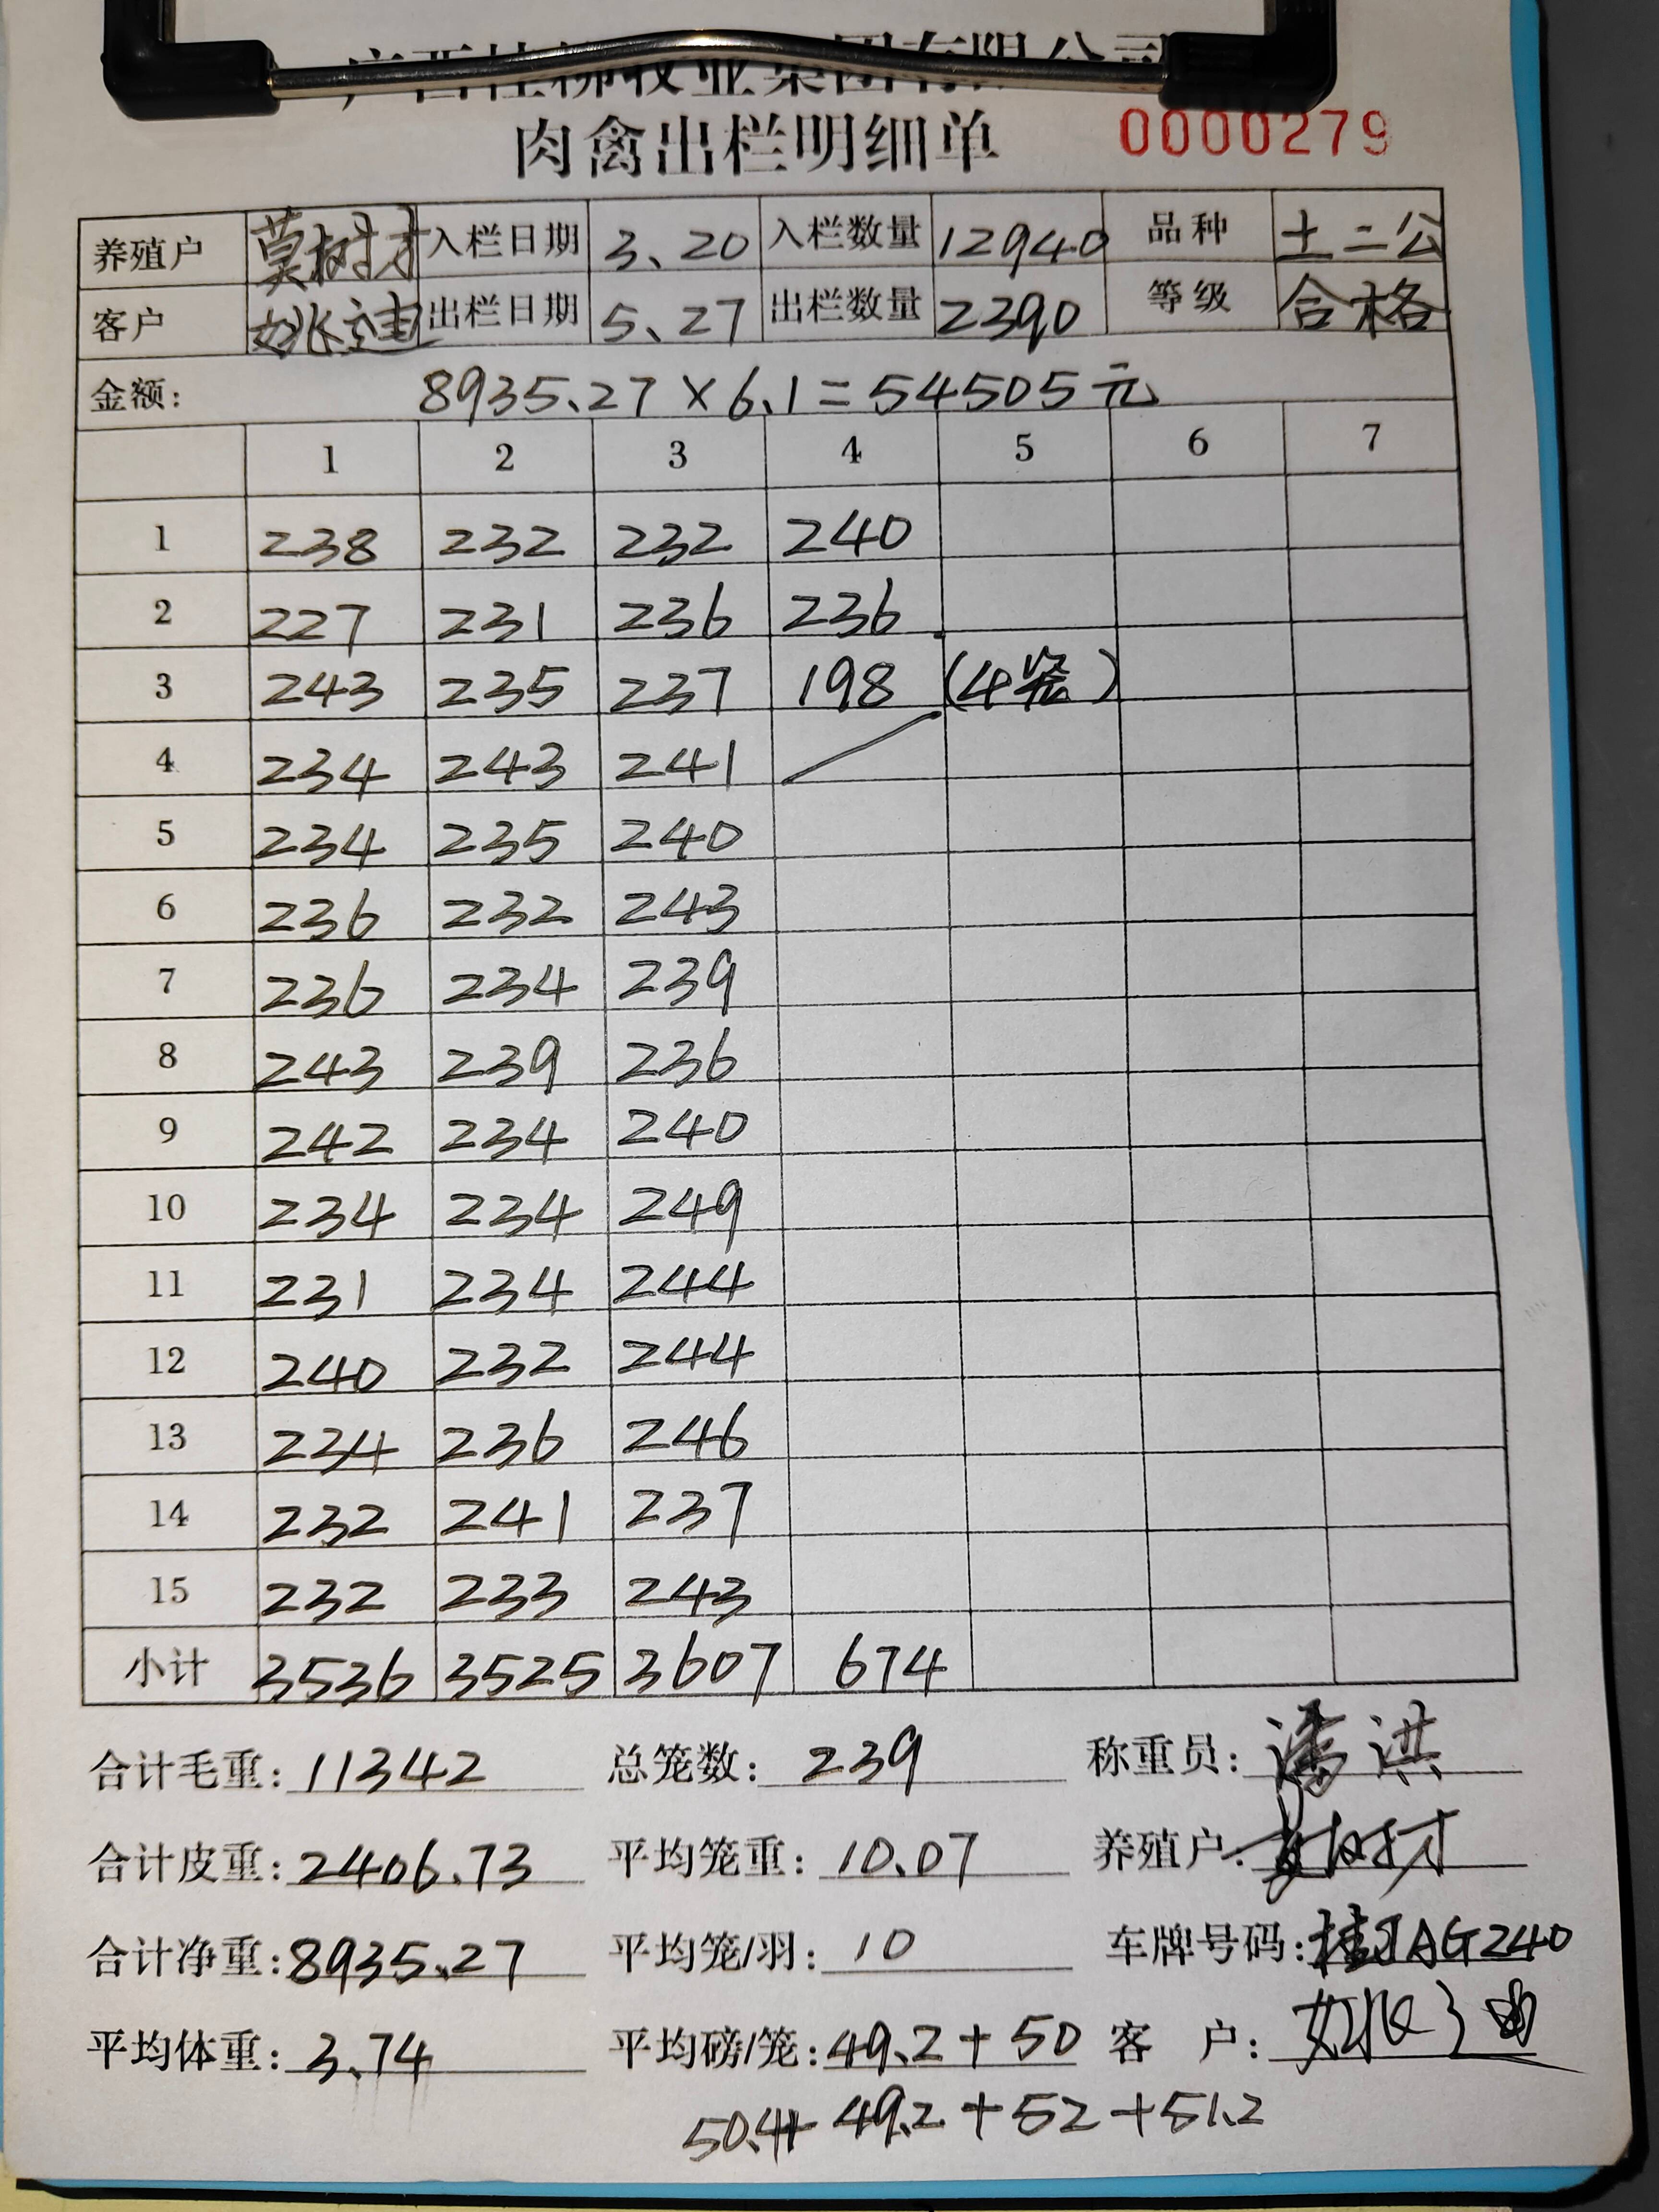 广西桂柳牧业集团有限公司
肉禽出栏明细单 0000279
养殖户 莫树才 入栏日期 3、20 入栏数量 12940 品种 土二公
客户 姚建 出栏日期 5、27 出栏数量 2390 等级 合格
金额: 8935.27×6.1=54505元
1 2 3 4 5 6 7
1 238 232 232 240
2 227 231 236 236
3 243 235 237 198 (4笼)
4 234 243 241
5 234 235 240
6 236 232 243
7 236 234 239
8 243 239 236
9 242 234 240
10 234 234 249
11 231 234 244
12 240 232 244
13 234 236 246
14 232 241 237
15 232 233 243
小计 3536 3525 3607 674
合计毛重: 11342 总笼数: 239 称重员: 潘洪
合计皮重: 2406.73 平均笼重: 10.07 养殖户: 莫树才
合计净重: 8935.27 平均笼/羽: 10 车牌号码: 桂JAG240
平均体重: 3.74 平均磅/笼: 49.2+50 客 户:
50.4+ 49.2+52+51.2